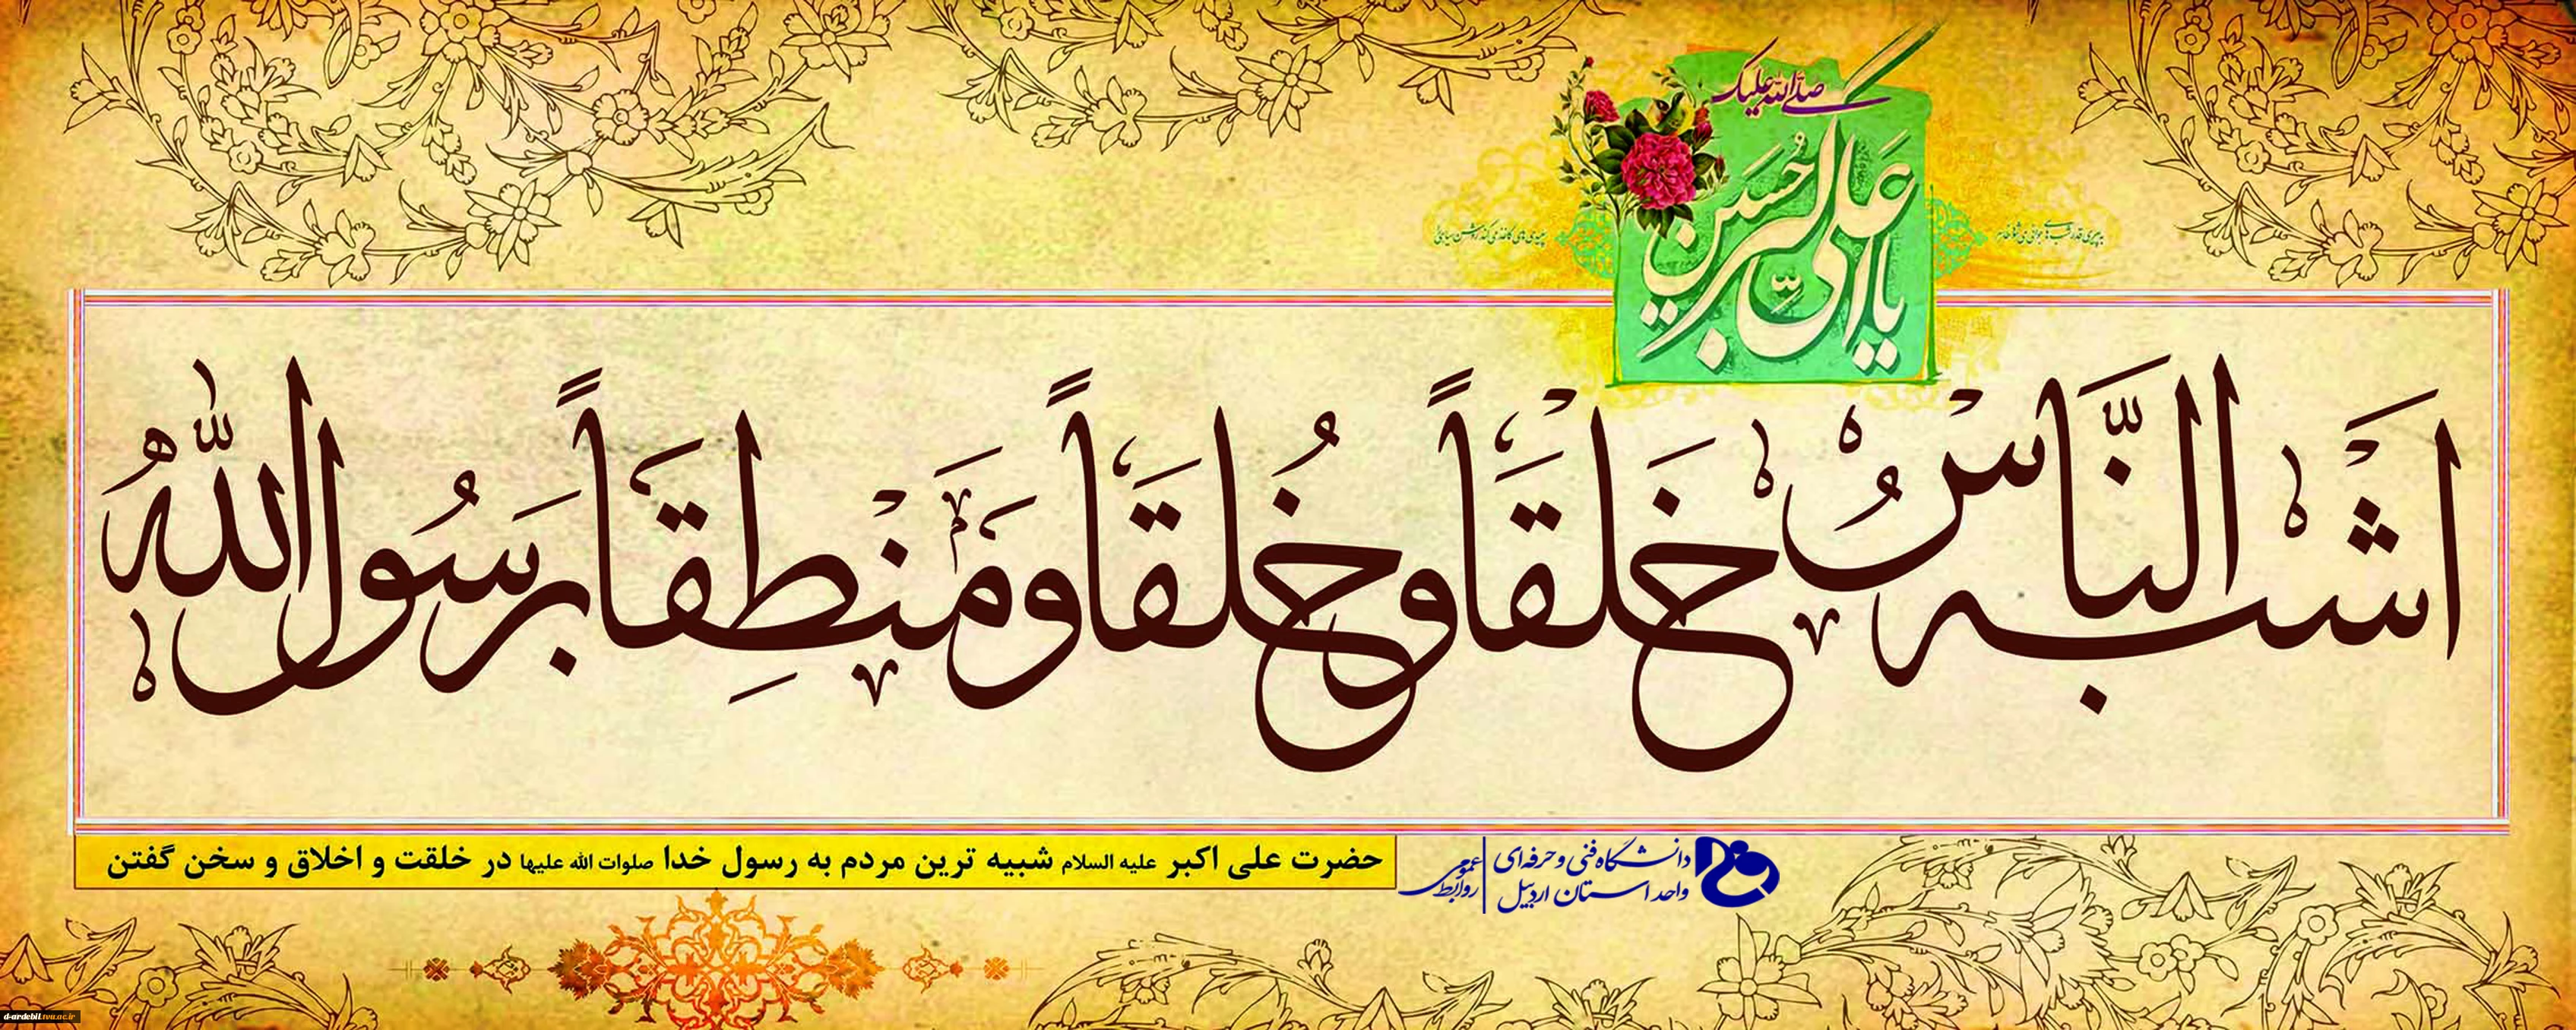 صلی الله علیک
یا علی اکبر حسین
اَشْبَهُ النَّاسِ خَلْقَاً وَ خُلُقَاً وَ مَنْطِقَاً بِرَسُولِ اللّٰهِ
حضرت علی اکبر علیه السلام شبیه ترین مردم به رسول خدا صلوات الله علیها در خلقت و اخلاق و سخن گفتن
دانشگاه فنی و حرفه‌ای
واحد استان اردبیل
روابط عمومی
d-ardebil.tvu.ac.ir